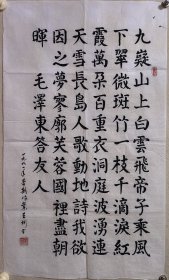 九嶷山上白雲飛帝子乘風
下翠微斑竹一枝千滴淚紅
霞萬朵百重衣洞庭波湧連
天雪長島人歌動地詩我欲
因之夢寥廓芙蓉國裡盡朝
暉 毛澤東答友人